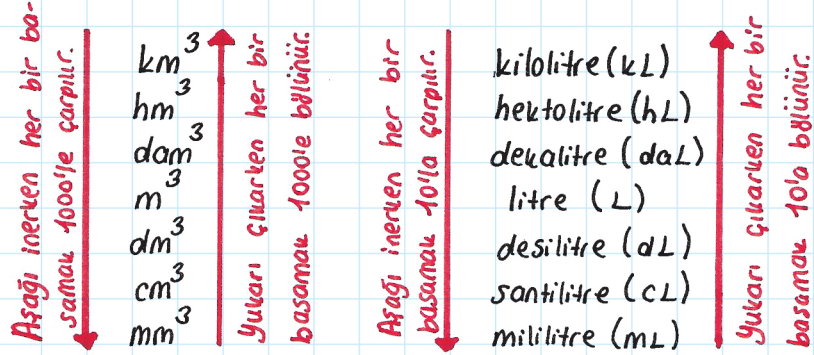 Aşağı inerken her bir ba-
samak 1000'le çarpılır.
km³
hm³
dam³
m³
dm³
cm³
mm³
Yukarı çıkarken her bir
basamak 1000'e bölünür.
Aşağı inerken her bir
basamak 10'la çarpılır.
kilolitre (kL)
hektolitre (hL)
dekalitre (daL)
litre (L)
desilitre (dL)
santilitre (cL)
mililitre (mL)
Yukarı çıkarken her bir
basamak 10'a bölünür.